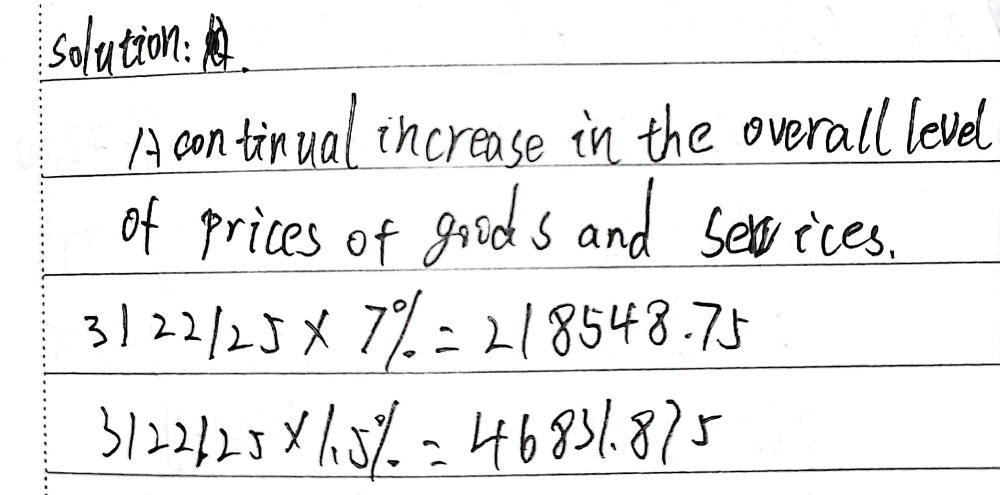 Solution:
A continual increase in the overall level
of prices of goods and services.
3122125 × 7% = 218548.75
3122125 × 1.5% = 46831.875